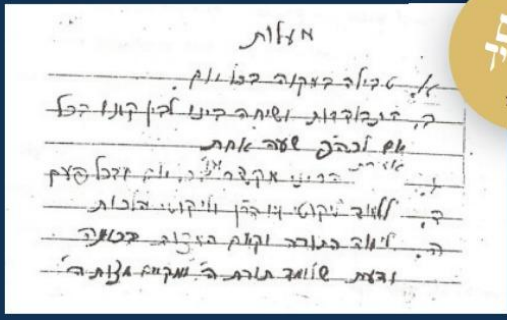 מעלות
א. טבילה במקוה בכל יום
ב. התבודדות ושיחה בינו לבין קונו בכל
יום לכה"פ שעה אחת
אמירת
ג. הריני מקשר יום ובכל פעם
ד. ללמוד ליקוטי מוהרן וליקוטי הלכות
ה. לימוד התורה וקיום המצוות בכוונה
ודעת שלומד תורת ה' ומקיים מצות ה'